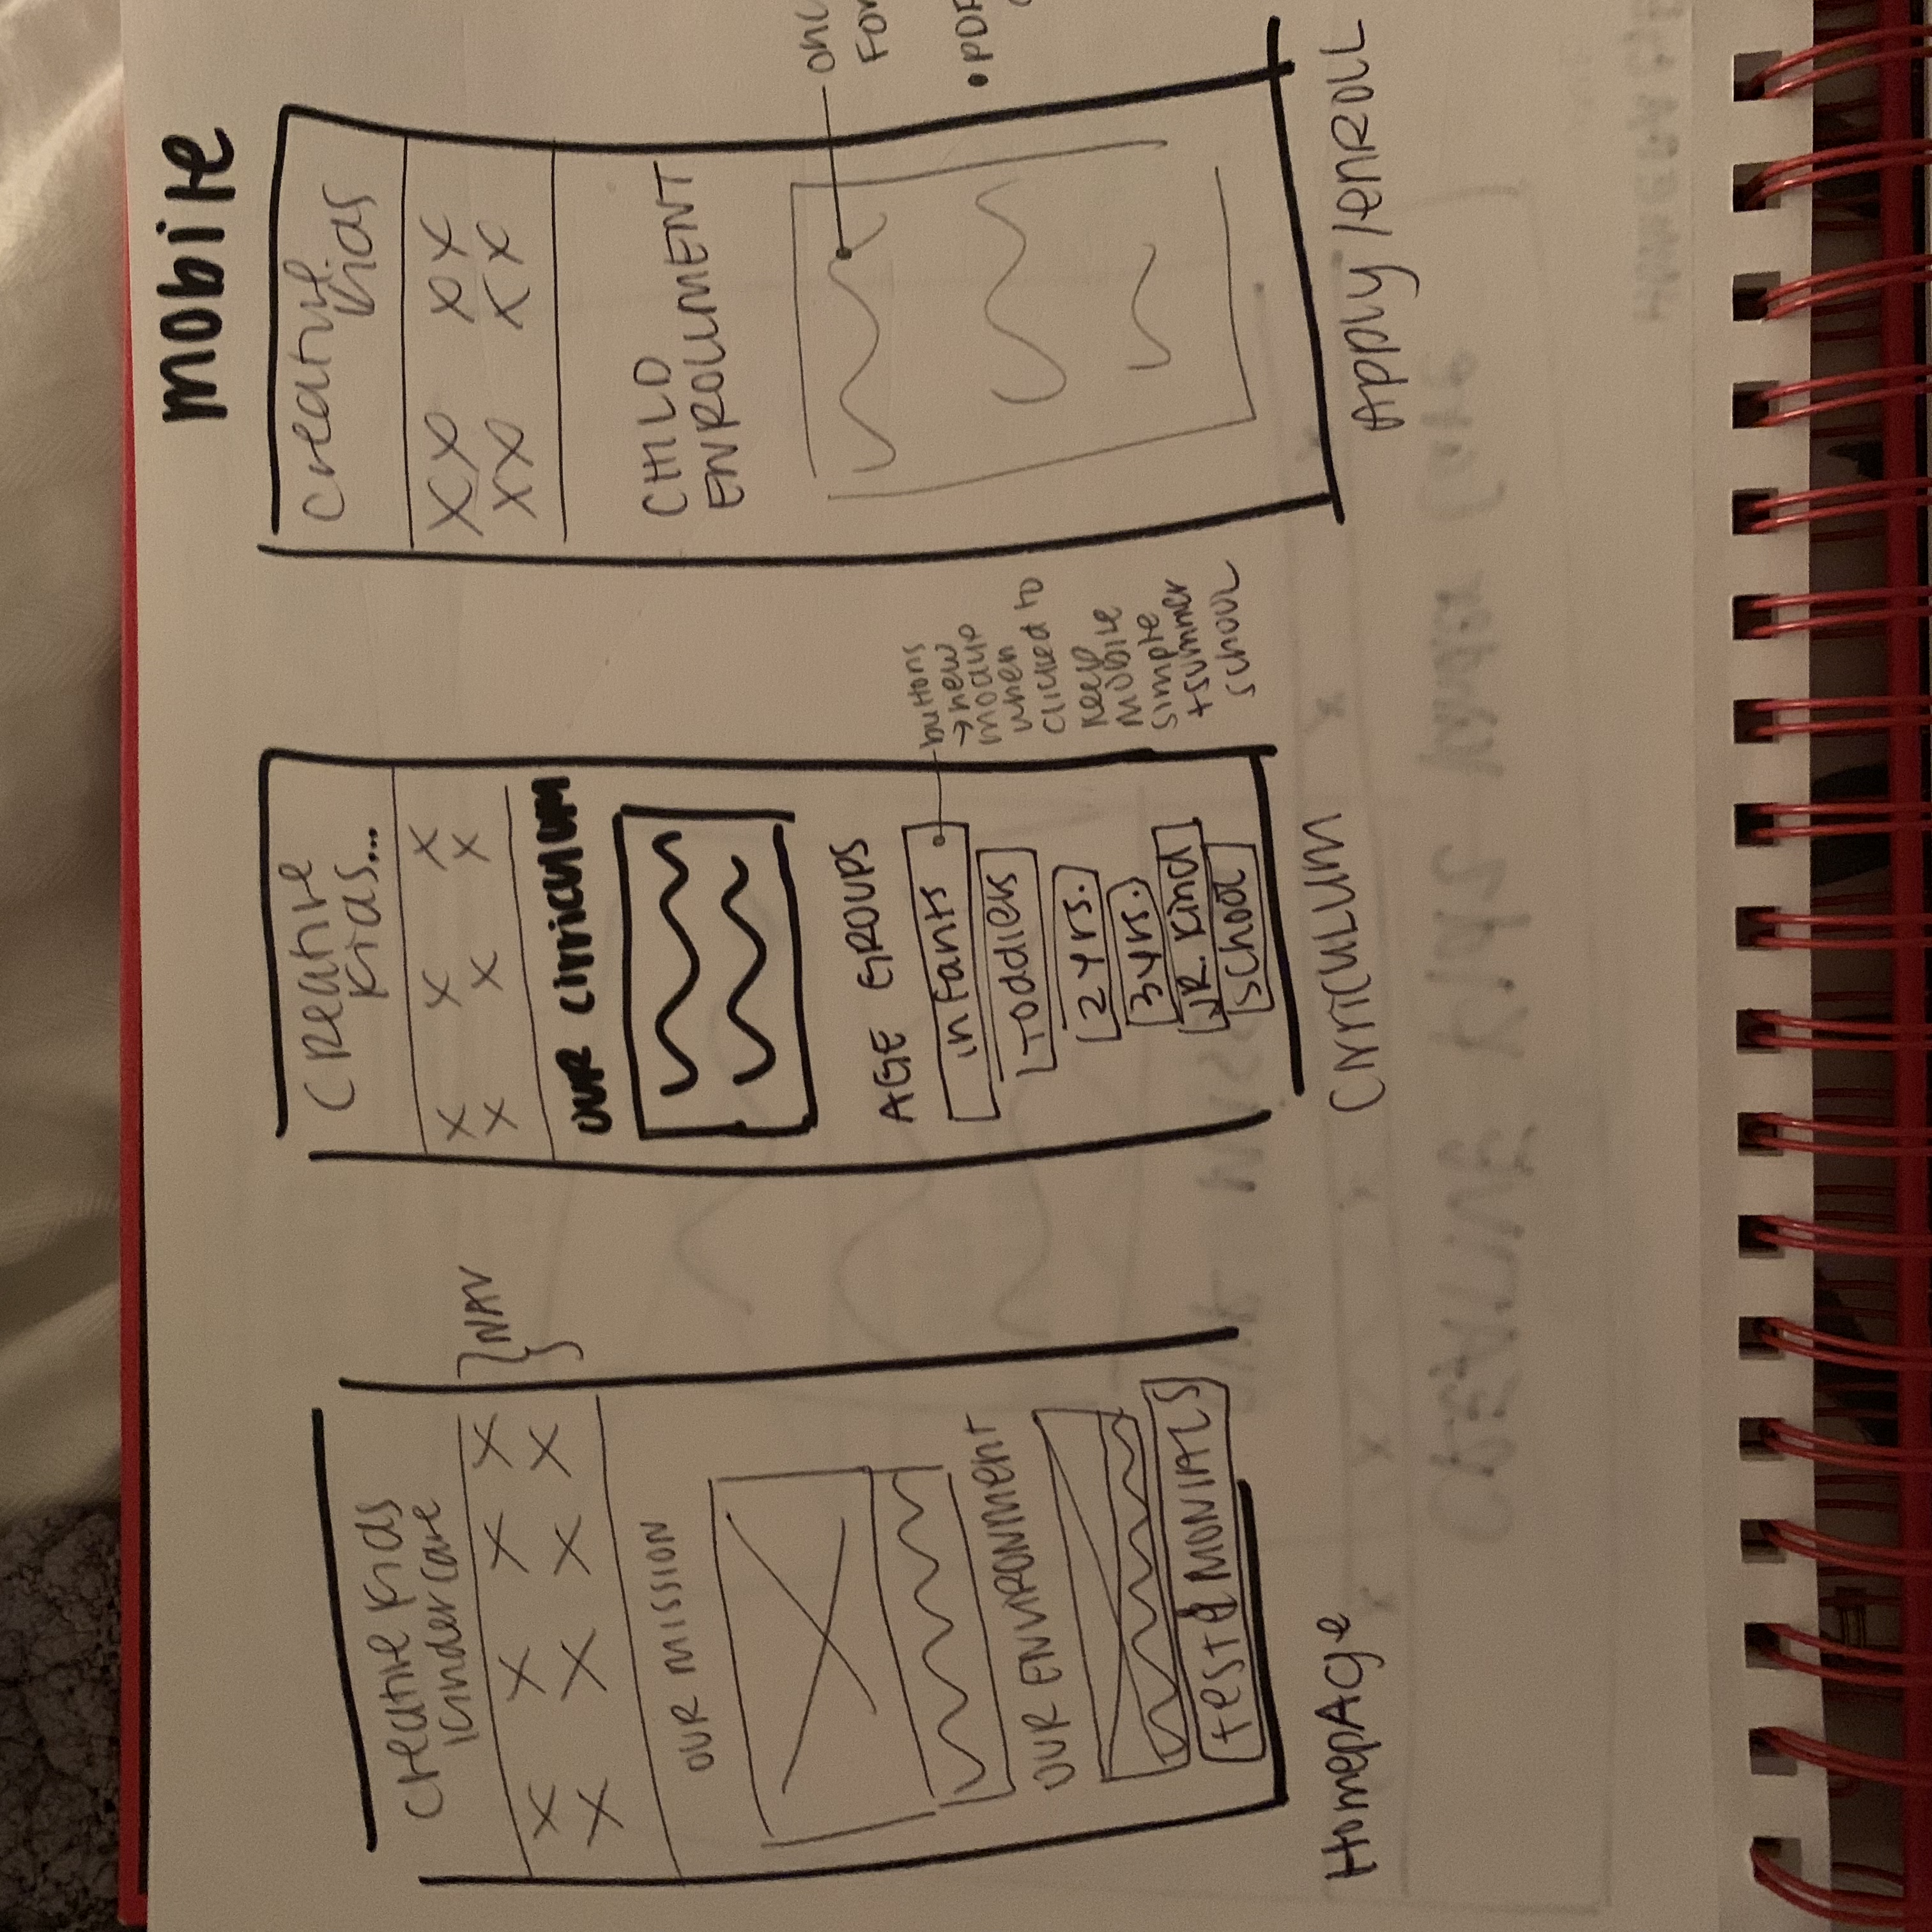 mobile
Creative Kids
Kinder Care
NAV
OUR MISSION
OUR ENVIRONMENT
testiMONIALS
HomepAge
Creative
Kids...
OUR Cirriculum
AGE GROUPS
infants
Toddlers
2 yrs.
3 yrs.
JR. Kind
school
buttons
→ new
mockup
when
clicked to
keep
mobile
simple
+ summer
school
CirriCULUM
Creative
Kids
CHILD
ENROLLMENT
• PDF
Apply / enROLL